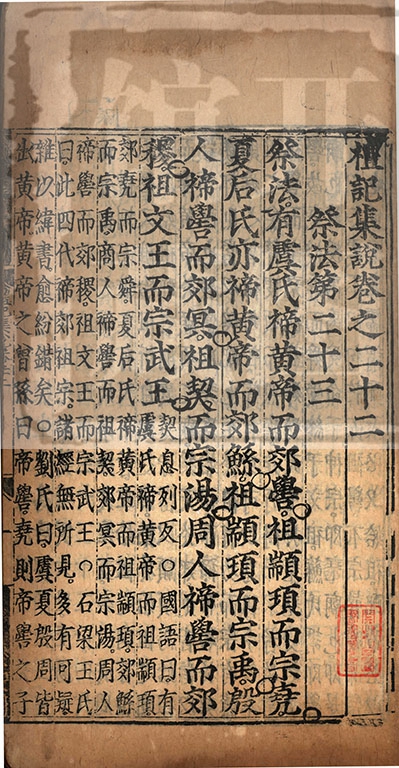 禮記集說卷之二十二
祭法第二十三
祭法有虞氏禘黃帝而郊嚳祖顓頊而宗堯
夏后氏亦禘黃帝而郊鯀祖顓頊而宗禹殷
人禘嚳而郊冥祖契而宗湯周人禘嚳而郊
稷祖文王而宗武王
契息列反○國語曰有
虞氏禘黃帝而祖顓頊
郊堯而宗舜夏后氏禘黃帝而祖顓頊郊鯀
而宗禹商人禘嚳而祖契郊冥而宗湯周人
禘嚳而郊稷祖文王而宗武王○石梁王氏
曰此四代禘郊祖宗諸經無所見多有可疑
雜以緯書愈紛錯矣○劉氏曰虞夏殷周皆
出黃帝黃帝之曾孫曰帝嚳堯則帝嚳之子